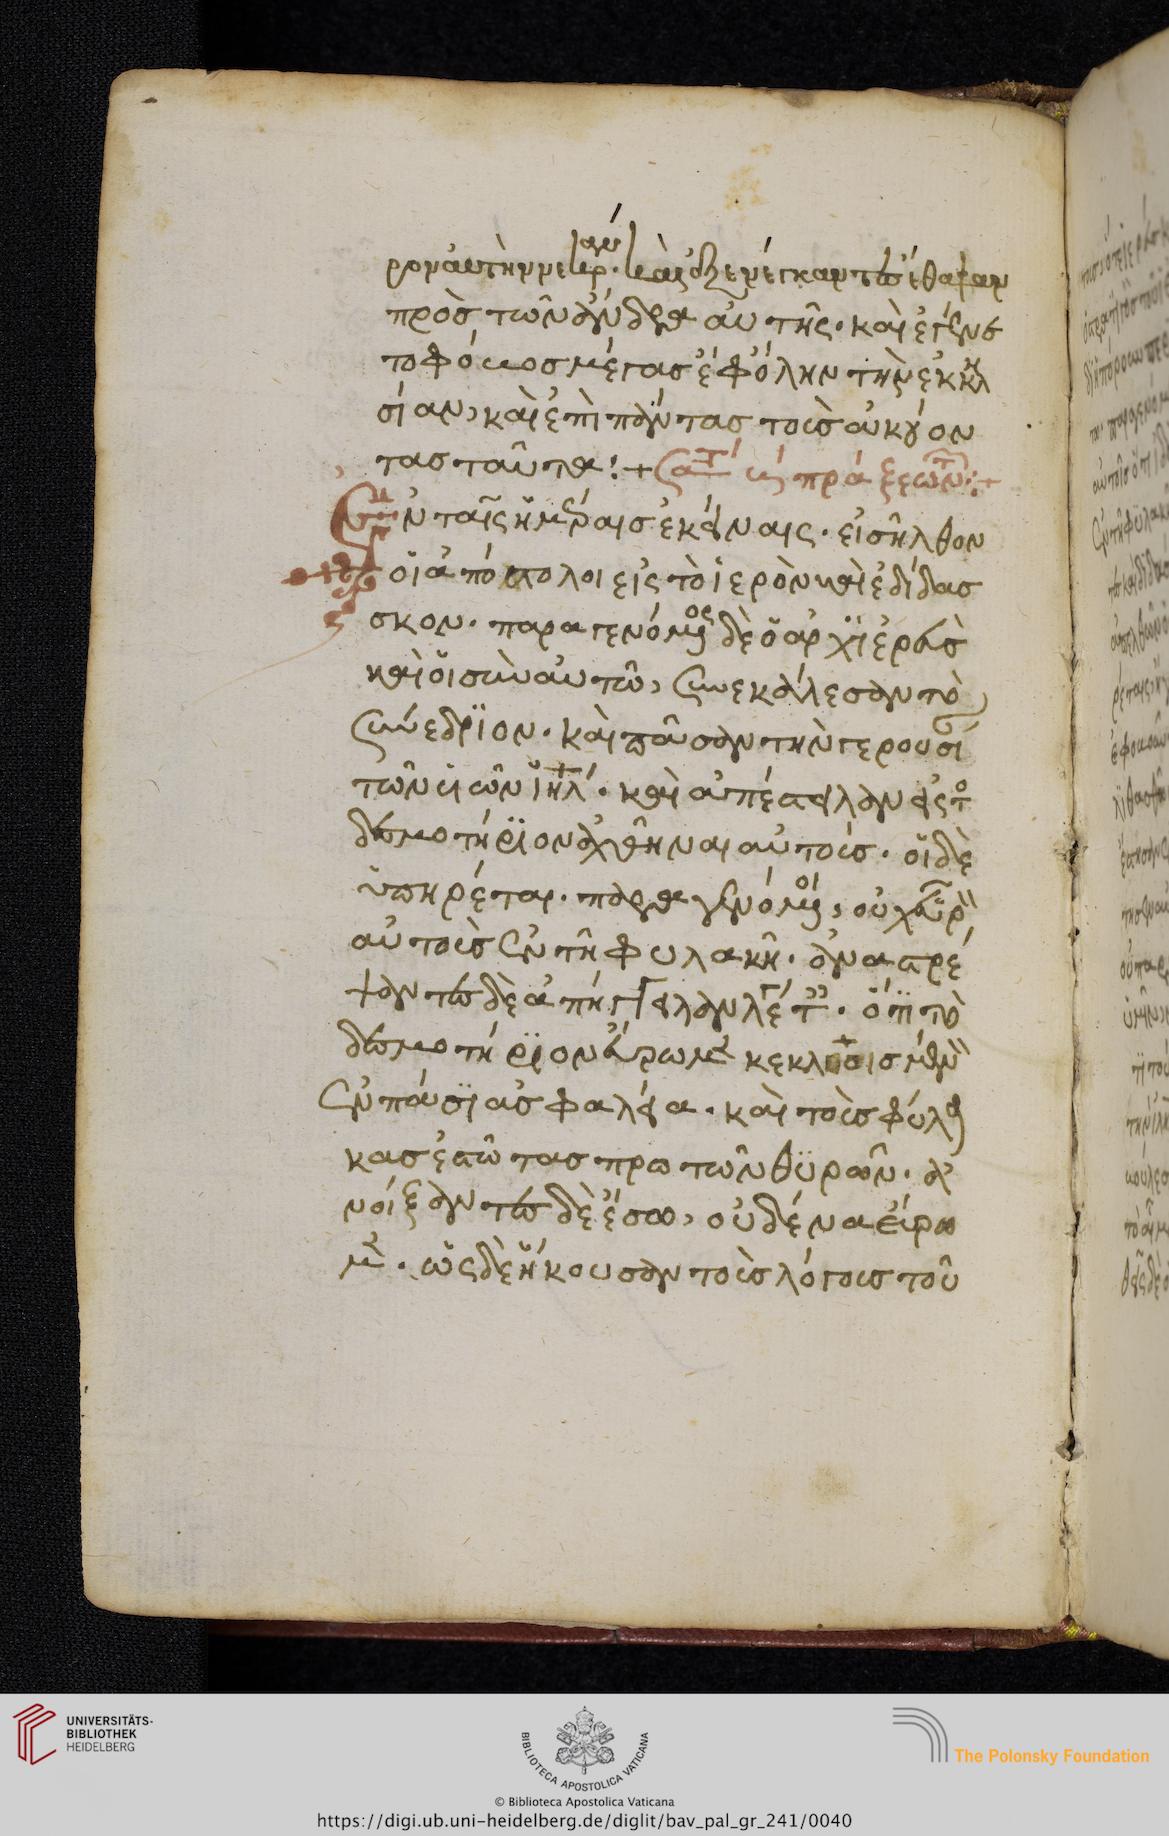 ρον αὐτὴν νεκράν· καὶ ἐξενέγκαντες ἔθαψαν
πρὸς τὸν ἄνδρα αὐτῆς· καὶ ἐγένε
το φόβος μέγας ἐφ' ὅλην τὴν ἐκκλη
σίαν, καὶ ἐπὶ πάντας τοὺς ἀκούον
τας ταῦτα:+ πράξεων:+
Ἐν ταῖς ἡμέραις ἐκείναις· εἰσῆλθον
οἱ ἀπόστολοι εἰς τὸ ἱερὸν καὶ ἐδίδασ
σκον· παραγενόμενος δὲ ὁ ἀρχϊἐρεὺς
καὶ οἱ σὺν αὐτῶ, συνεκάλεσαν τὸ
συνέδρϊον· καὶ πᾶσαν τὴν γερουσί
τῶν υἱῶν ἰηλ· καὶ ἀπέστειλαν εἰς τὸ
δεσμοτήρϊον ἀχθῆναι αὐτοὺς· οἱ δὲ
ὑπηρέται· παραγενόμενοι, οὐχ εὗρον
αὐτοὺς ἐν τῆ φυλακῆ· ἀναστρέ
ψαντες δὲ ἀπήγγειλαν λέγοντες· ὅτι τὸ
δεσμοτήρϊον εὕρωμεν κεκλεισμένον
ἐν πάσϊ ἀσφαλεία· καὶ τοὺς φύλα
κας ἑστῶτας πρω τῶν θϋρῶν· ἀ
νοίξαντες δὲ ἔσω, οὐδένα εὕρω
μεν· ὡς δὲ ἤκουσαν τοὺς λόγους τοῦ
UNIVERSITÄTS-
BIBLIOTHEK
HEIDELBERG
BIBLIOTECA APOSTOLICA VATICANA
The Polonsky Foundation
© Biblioteca Apostolica Vaticana
https://digi.ub.uni-heidelberg.de/diglit/bav_pal_gr_241/0040